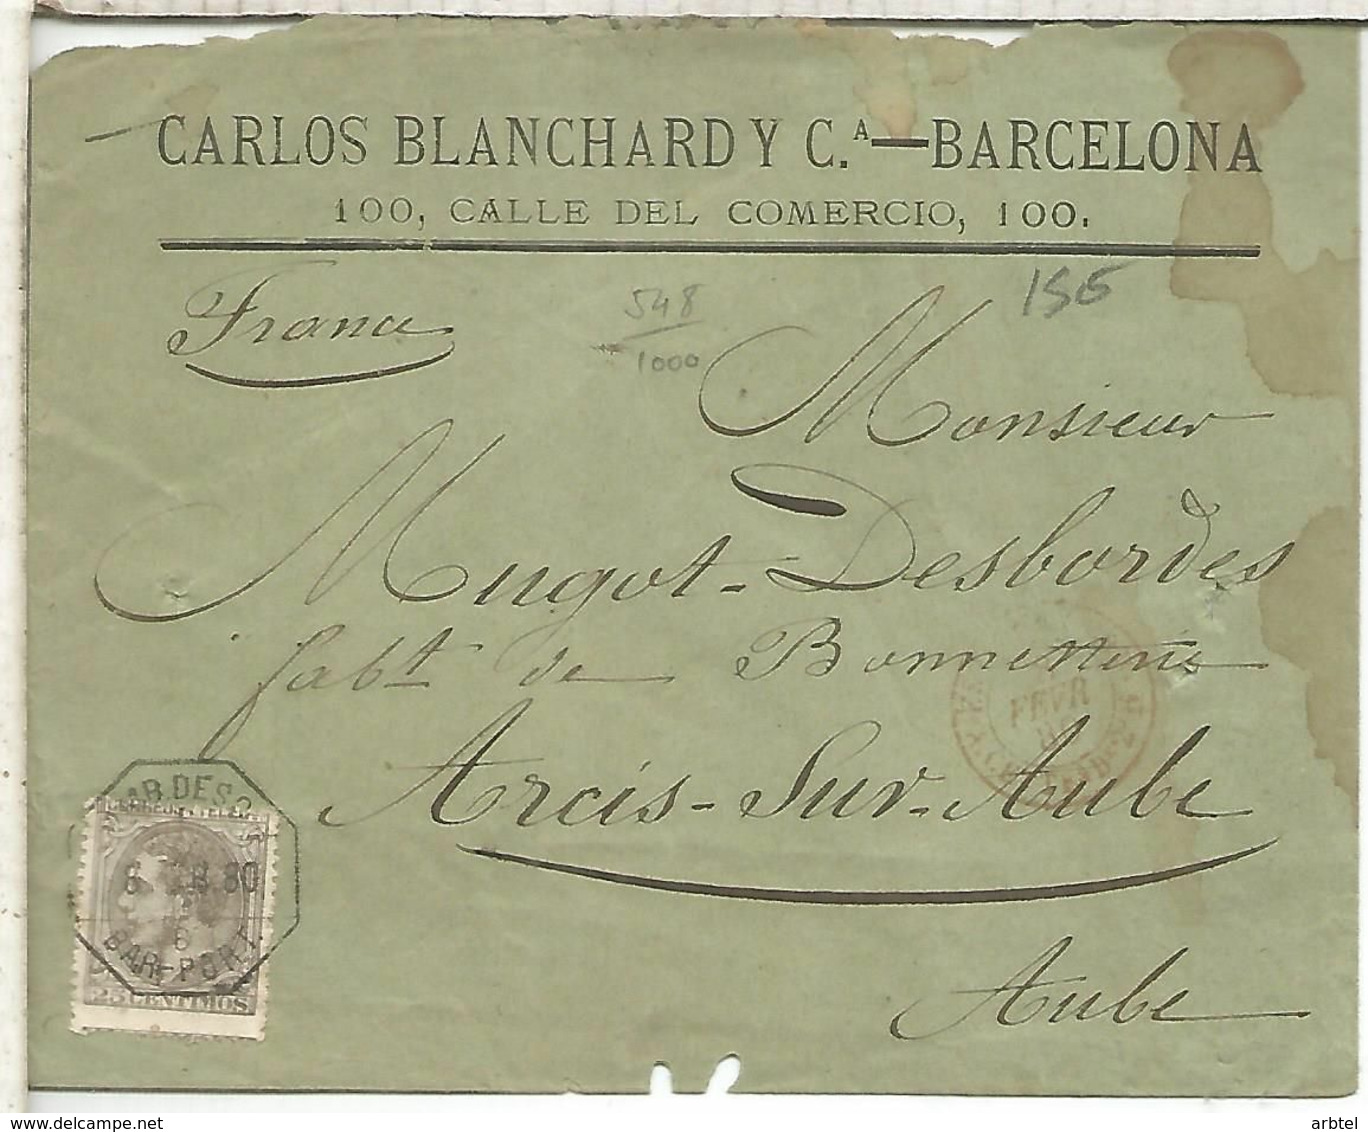 CARLOS BLANCHARD Y C.ᴬ—BARCELONA
100, CALLE DEL COMERCIO, 100.
France
548
1000
156
Monsieur
Mugot-Desbordes
fabt. de Bonneterie
Arcis-Sur-Aube
Aube
FEVR
AMB.DESC.
6 FEB.80
6
BAR-PORT.
25 CENTIMOS
www.delcampe.com
arbtel